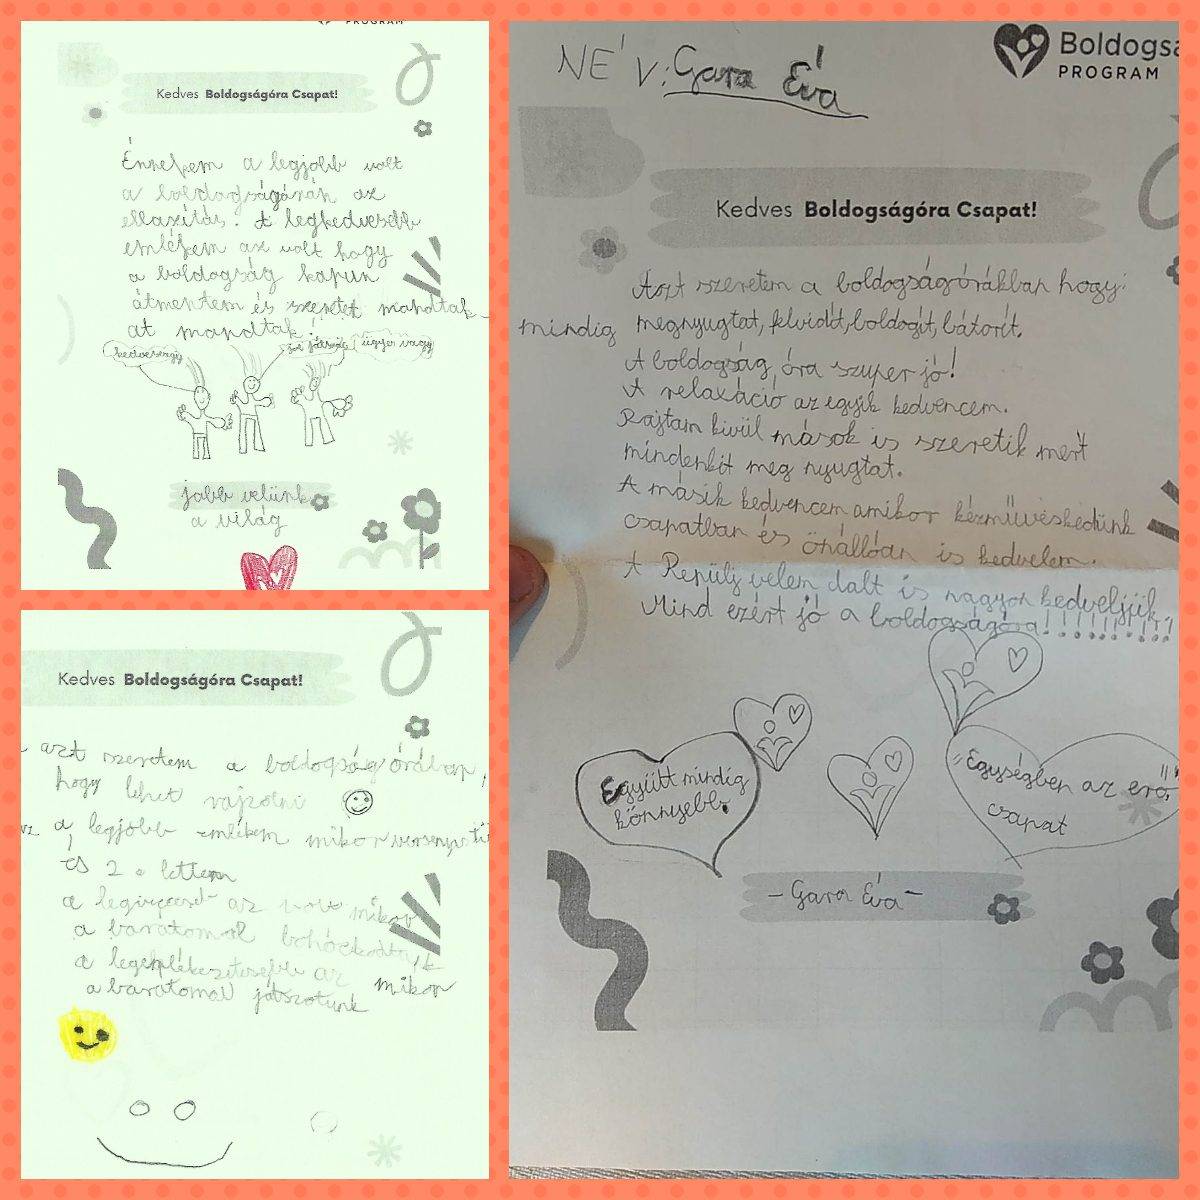 PROGRAM
Kedves Boldogságóra Csapat!
Énnekem a legjobb volt
a boldogságórán az
ellazítás. A legkedvesebb
emlékem az volt hogy
a boldogság kapun
átmentem és szeretet mondtak
at mondtak.
kedves vagy
jól játszol
ügyes vagy
jobb velünk
a világ
Kedves Boldogságóra Csapat!
azt szeretem a boldogság órában,
hogy lehet rajzolni
a legjobb emlékem mikor
és 2. lettem
a az volt mikor
a barátomal bohóckodtunk
a az mikor
a barátomal játszotunk
NÉV: Gara Éva
Boldogsá
PROGRAM
Kedves Boldogságóra Csapat!
Aszt szeretem a boldogságórákban hogy:
mindig megnyugtat, felvidít, boldogít, bátorít.
A boldogság óra szuper jó!
A relaxáció az egyik kedvencem.
Rajtam kivül mások is szeretik mert
mindenkit meg nyugtat.
A másik kedvencem amikor kézművéskedünk
csapatban és önállóan is kedvelem.
A Repülj velem dalt is nagyon kedveljük.
Mind ezért jó a boldogságóra!!!!!!!!!!
Együtt mindig
könnyebb.
"Egységben az erő"
csapat
- Gara Éva -